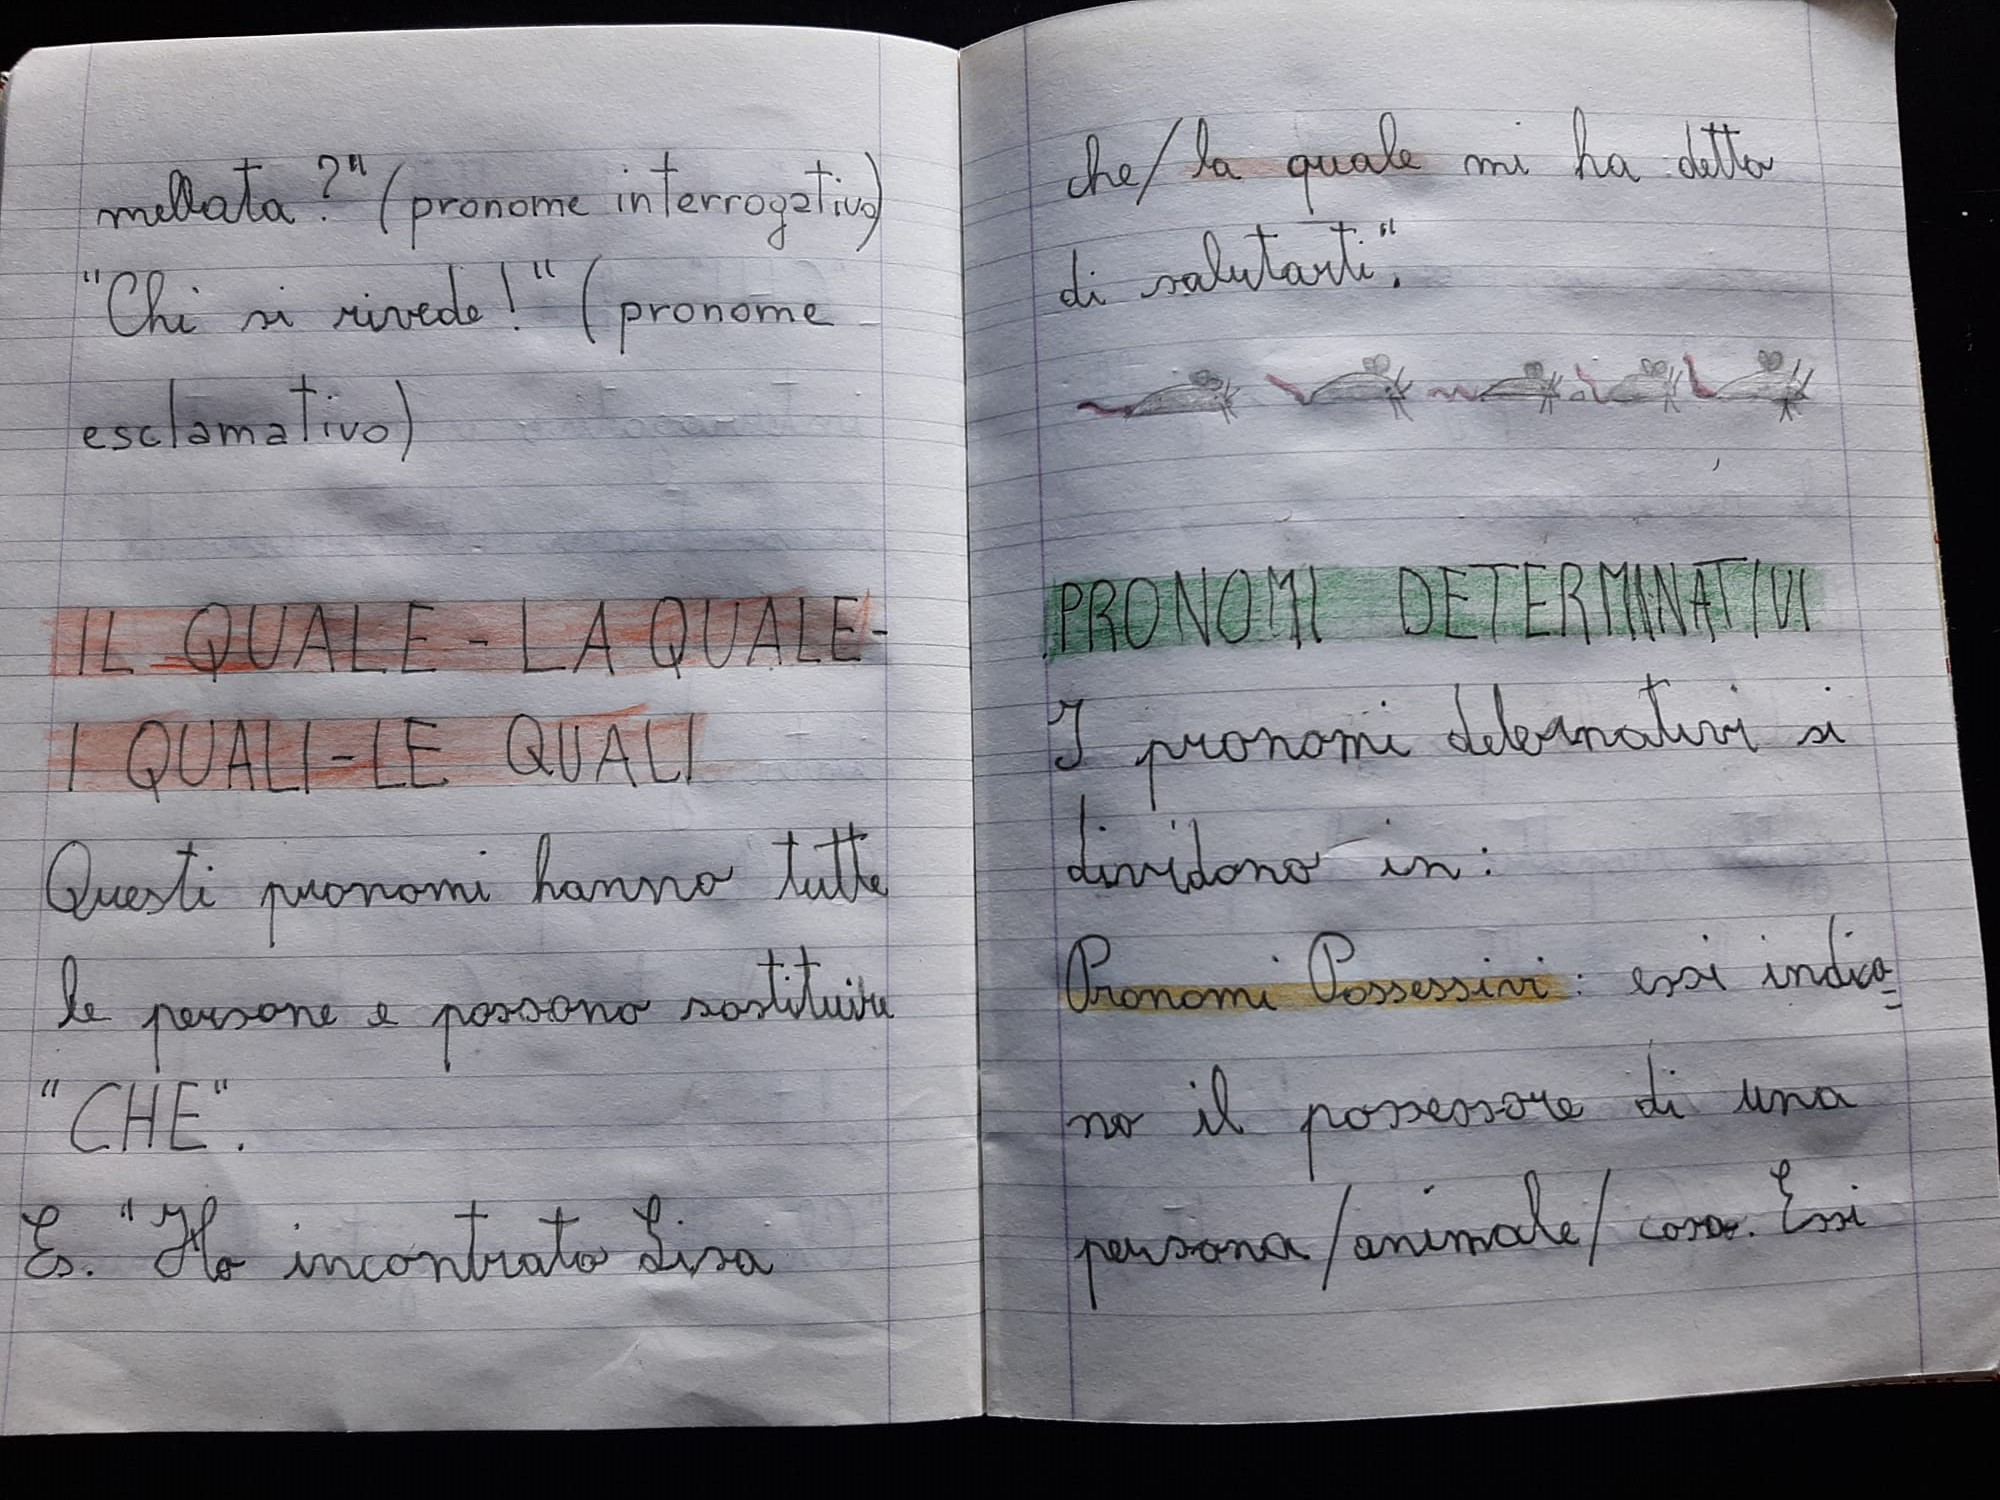 mellata?" (pronome interrogativo)
"Chi si rivede!" (pronome
esclamativo)
IL QUALE - LA QUALE -
I QUALI - LE QUALI
Questi pronomi hanno tutte
le persone e possono sostituire
"CHE".
Es. "Ho incontrato Lisa
che/la quale mi ha detto
di salutarti".
PRONOMI DETERMINATIVI
I pronomi determinativi si
dividono in:
Pronomi Possessivi: essi indica=
no il possessore di una
persona/animale/cosa. Essi